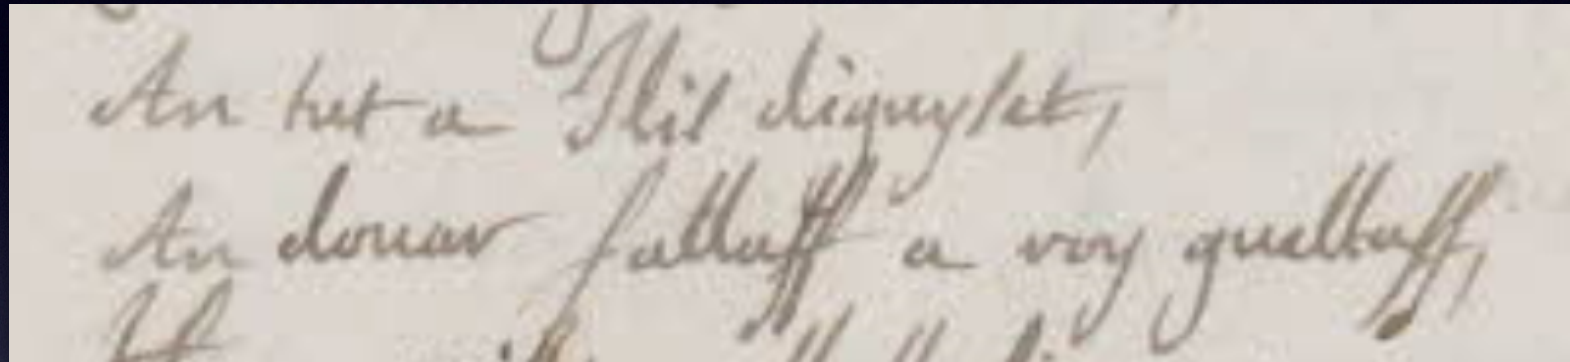 An tut a Ilis diguyset,
An douar fallaff a voy guellaff,